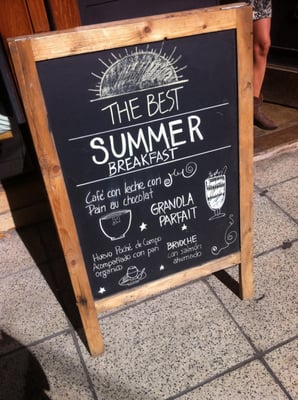 THE BEST
SUMMER
BREAKFAST
Café con leche con
Pain au chocolat
GRANOLA
PARFAIT
Huevo Poché de Campo
Acompañado con pan
orgánico
BRIOCHE
con salmón
ahumado